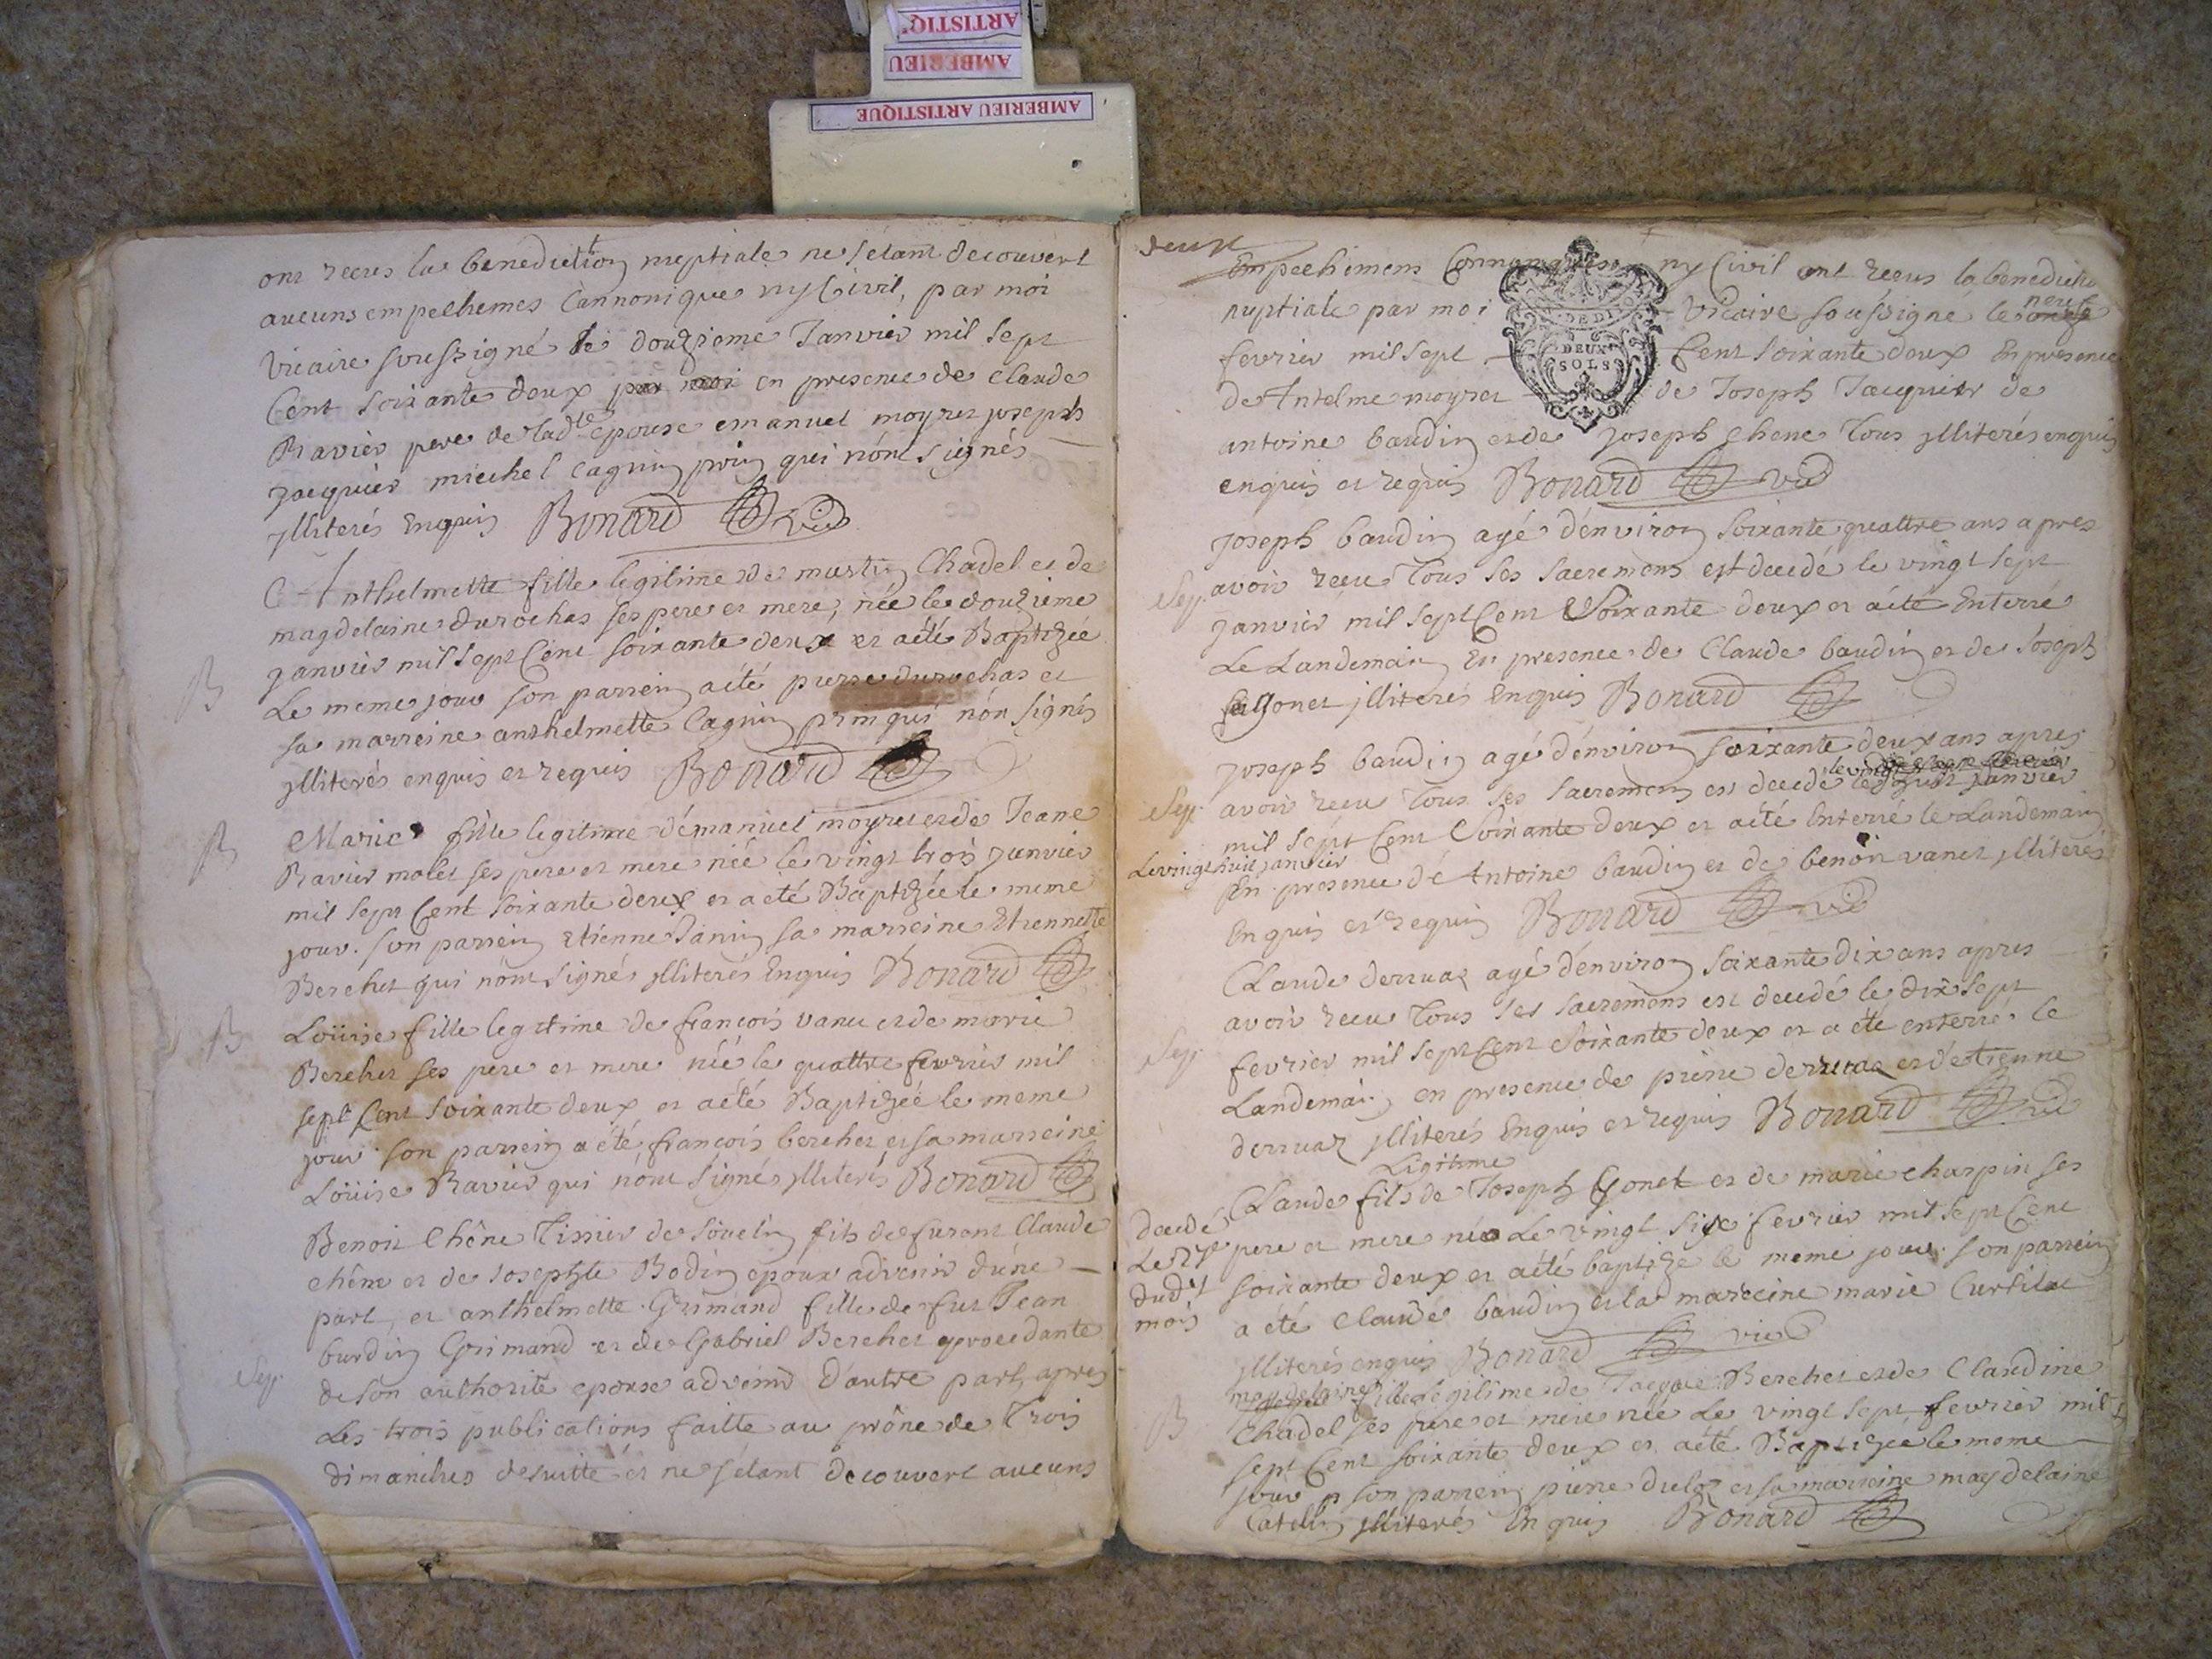 ARTISTIQ'
AMBERIEU
AMBERIEU ARTISTIQUE
ont recus la benediction nuptiale ne sétant decouvert
aucuns empeschemes Cannonique ny Civil, par moi
Vicaire soussigné le douzieme Janvier mil sept
Cent soixante deux par moi en presence de Claude
Ravier pere de ladte epouse emanuel moyret joseph
jacquier miechel cagnin qui nónt signés
jlliterés Enquis Bonard vic
Anthelmette fille legitime de Chadel et de
magdelaine durochas ses pere et mere, née le douzieme
janvier mil sept Cent soixante deux et aété Baptizée
B
Le meme jour son parrein aété pierre durochas et
sa marreine anthelmette Cagnin qui nón signés
jlliterés enquis et requis Bonard
B
Marie fille legitime démanuel moyret et de Jeane
Ravier molet ses pere et mere née le vingt trois janvier
mil sept Cent soixante deux et a eté Baptizée le meme
jour. son parrein etienne Janin sa marreine Etiennette
Berchet qui nónt signés jlliterés Enquis Bonard
B
Loüise fille legitime de francois vanu et de marie
Berchet ses pere et mere née le quattre fevrier mil
sept Cent soixante deux et aété Baptizée le meme
jour son parrein a été francois berchet et sa marreine
Loüise Ravier qui nónt signés jlliterés Bonard
Benoit Chêne Tissier de Souclin fils de furent Claude
chêne et de Josephte Bodin epoux advenir dúne
part, et anthelmette Grimand fille de fut Jean
burdin Grimand et de Gabriel Berchet procedante
Sep.
de son authorité epouse advenir dáutre part, apres
Les trois publications faitte au prône de Trois
dimanches desuitte et ne sétant decouvert aucuns
deux
Empechemens ny Civil ont recus la benedictio
nuptiale par moi Vicaire soussigné le onze neuf
fevrier mil sept Cent soixante deux En presence
DEUX
SOLS
de Antelme moyret de Joseph Jacquier de
antoine baudin et de joseph Chene Tous jlliterés enquis
enquis et requis Bonard vic
joseph baudin agé dénviron soixante quattre ans apres
Sep.
avoir recu Tous ses sacremens est decedé le vingt sept
janvier mil sept Cent Soixante deux et aété Enterré
Le Landemain En presence de Claude baudin et de Joseph
Gonet jlliterés Enquis Bonard
joseph baudin agé dénviron soixante deux ans apres
Sep.
avoir recu Tous ses sacremens est decedé janvier
mil sept Cent Soixante deux et aété Enterré le Landemain
Le vingt huit janvier
En presence dé Antoine baudin et de benoit vanet jlliterés
Enquis et requis Bonard vic
Claude derruaz agé dénviron soixante dix ans apres
avoir recu Tous ses sacremens est decedé le dix sept
Sep.
fevrier mil sept Cent Soixante deux et a été enterré le
Landemain en presence de pierre derruaz et détienne
derruaz jlliterés Enquis et requis Bonard vic
Ligitime
Claude fils de Joseph Gonet et de marie charpin ses
decedé
Le 27e
dudt
mois
pere et mere née Le vingt six fevrier mil sept Cent
soixante deux et aété baptize le meme jour. son parrein
a été Claude baudin et la marreine marie Curtilat
jlliterés enquis Bonard vic
magdelaine fille legitime de Jacque Berchet et de Claudine
B
Chadel ses pere et mere née Le vingt sept fevrier mil
sept Cent soixante deux et aété Baptizée le meme
jour son parrein pierre et sa marreine magdelaine
Catellin jlliterés Enquis Bonard